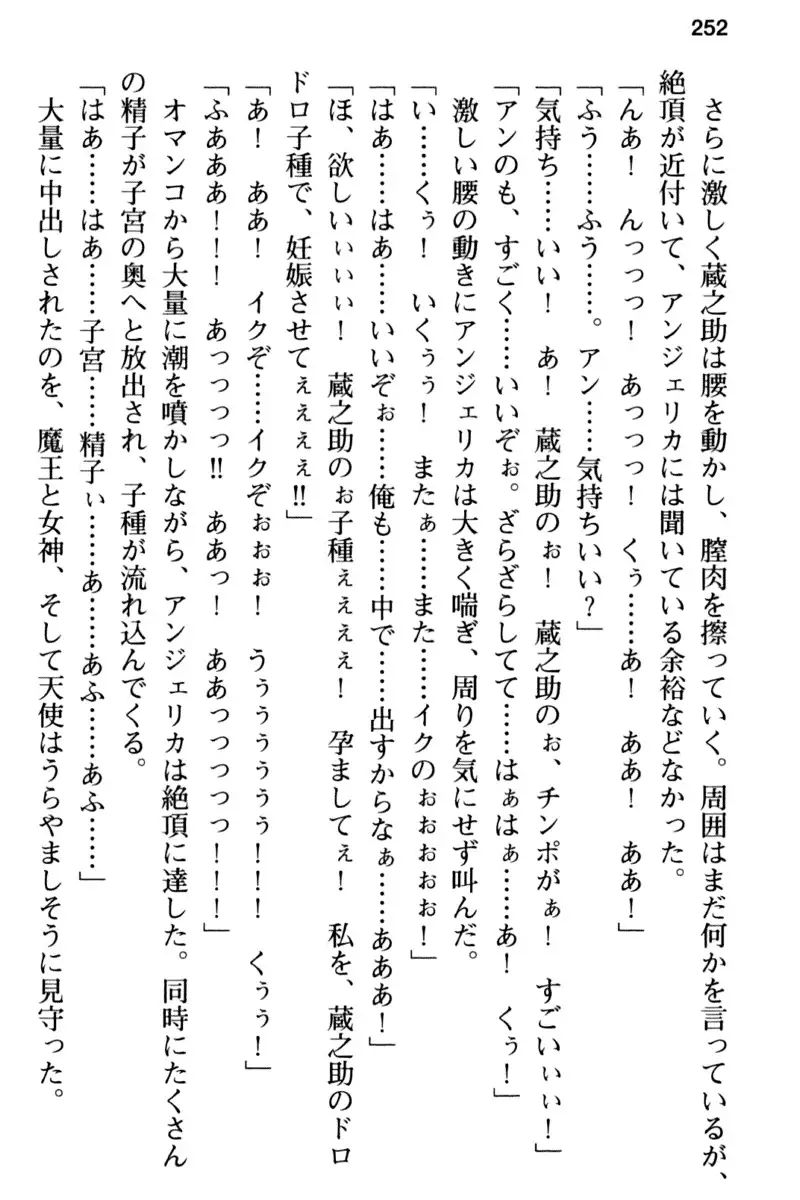 252
さらに激しく蔵之助は腰を動かし、膣肉を擦っていく。周囲はまだ何かを言っているが、
絶頂が近付いて、アンジェリカには聞いている余裕などなかった。
「んあ！　んっっっ！　あっっっ！　くぅ……あ！　ああ！　ああ！」
「ふう……ふう……。アン……気持ちいい？」
「気持ち……いい！　あ！　蔵之助のぉ！　蔵之助のぉ、チンポがぁ！　すごいぃぃ！」
「アンのも、すごく……いいぞぉ。ざらざらしてて……はぁはぁ……あ！　くぅ！」
激しい腰の動きにアンジェリカは大きく喘ぎ、周りを気にせず叫んだ。
「い……くぅ！　いくぅぅ！　またぁ……また……イクのぉぉぉぉぉ！」
「はあ……はあ……いいぞぉ……俺も……中で……出すからなぁ……あああ！」
「ほ、欲しいぃぃぃ！　蔵之助のぉ子種ぇぇぇぇ！　孕ましてぇ！　私を、蔵之助のドロ
ドロ子種で、妊娠させてぇぇぇぇ!!」
「あ！　ああ！　イクぞ……イクぞぉぉぉ！　うぅぅぅぅぅぅ！！！　くぅぅ！」
「ふあああ！！！　あっっっっ!!　ああっ！　ああっっっっっ！！！」
オマンコから大量に潮を噴かしながら、アンジェリカは絶頂に達した。同時にたくさん
の精子が子宮の奥へと放出され、子種が流れ込んでくる。
「はあ……はあ……子宮……精子ぃ……あ……あふ……あふ……」
大量に中出しされたのを、魔王と女神、そして天使はうらやましそうに見守った。